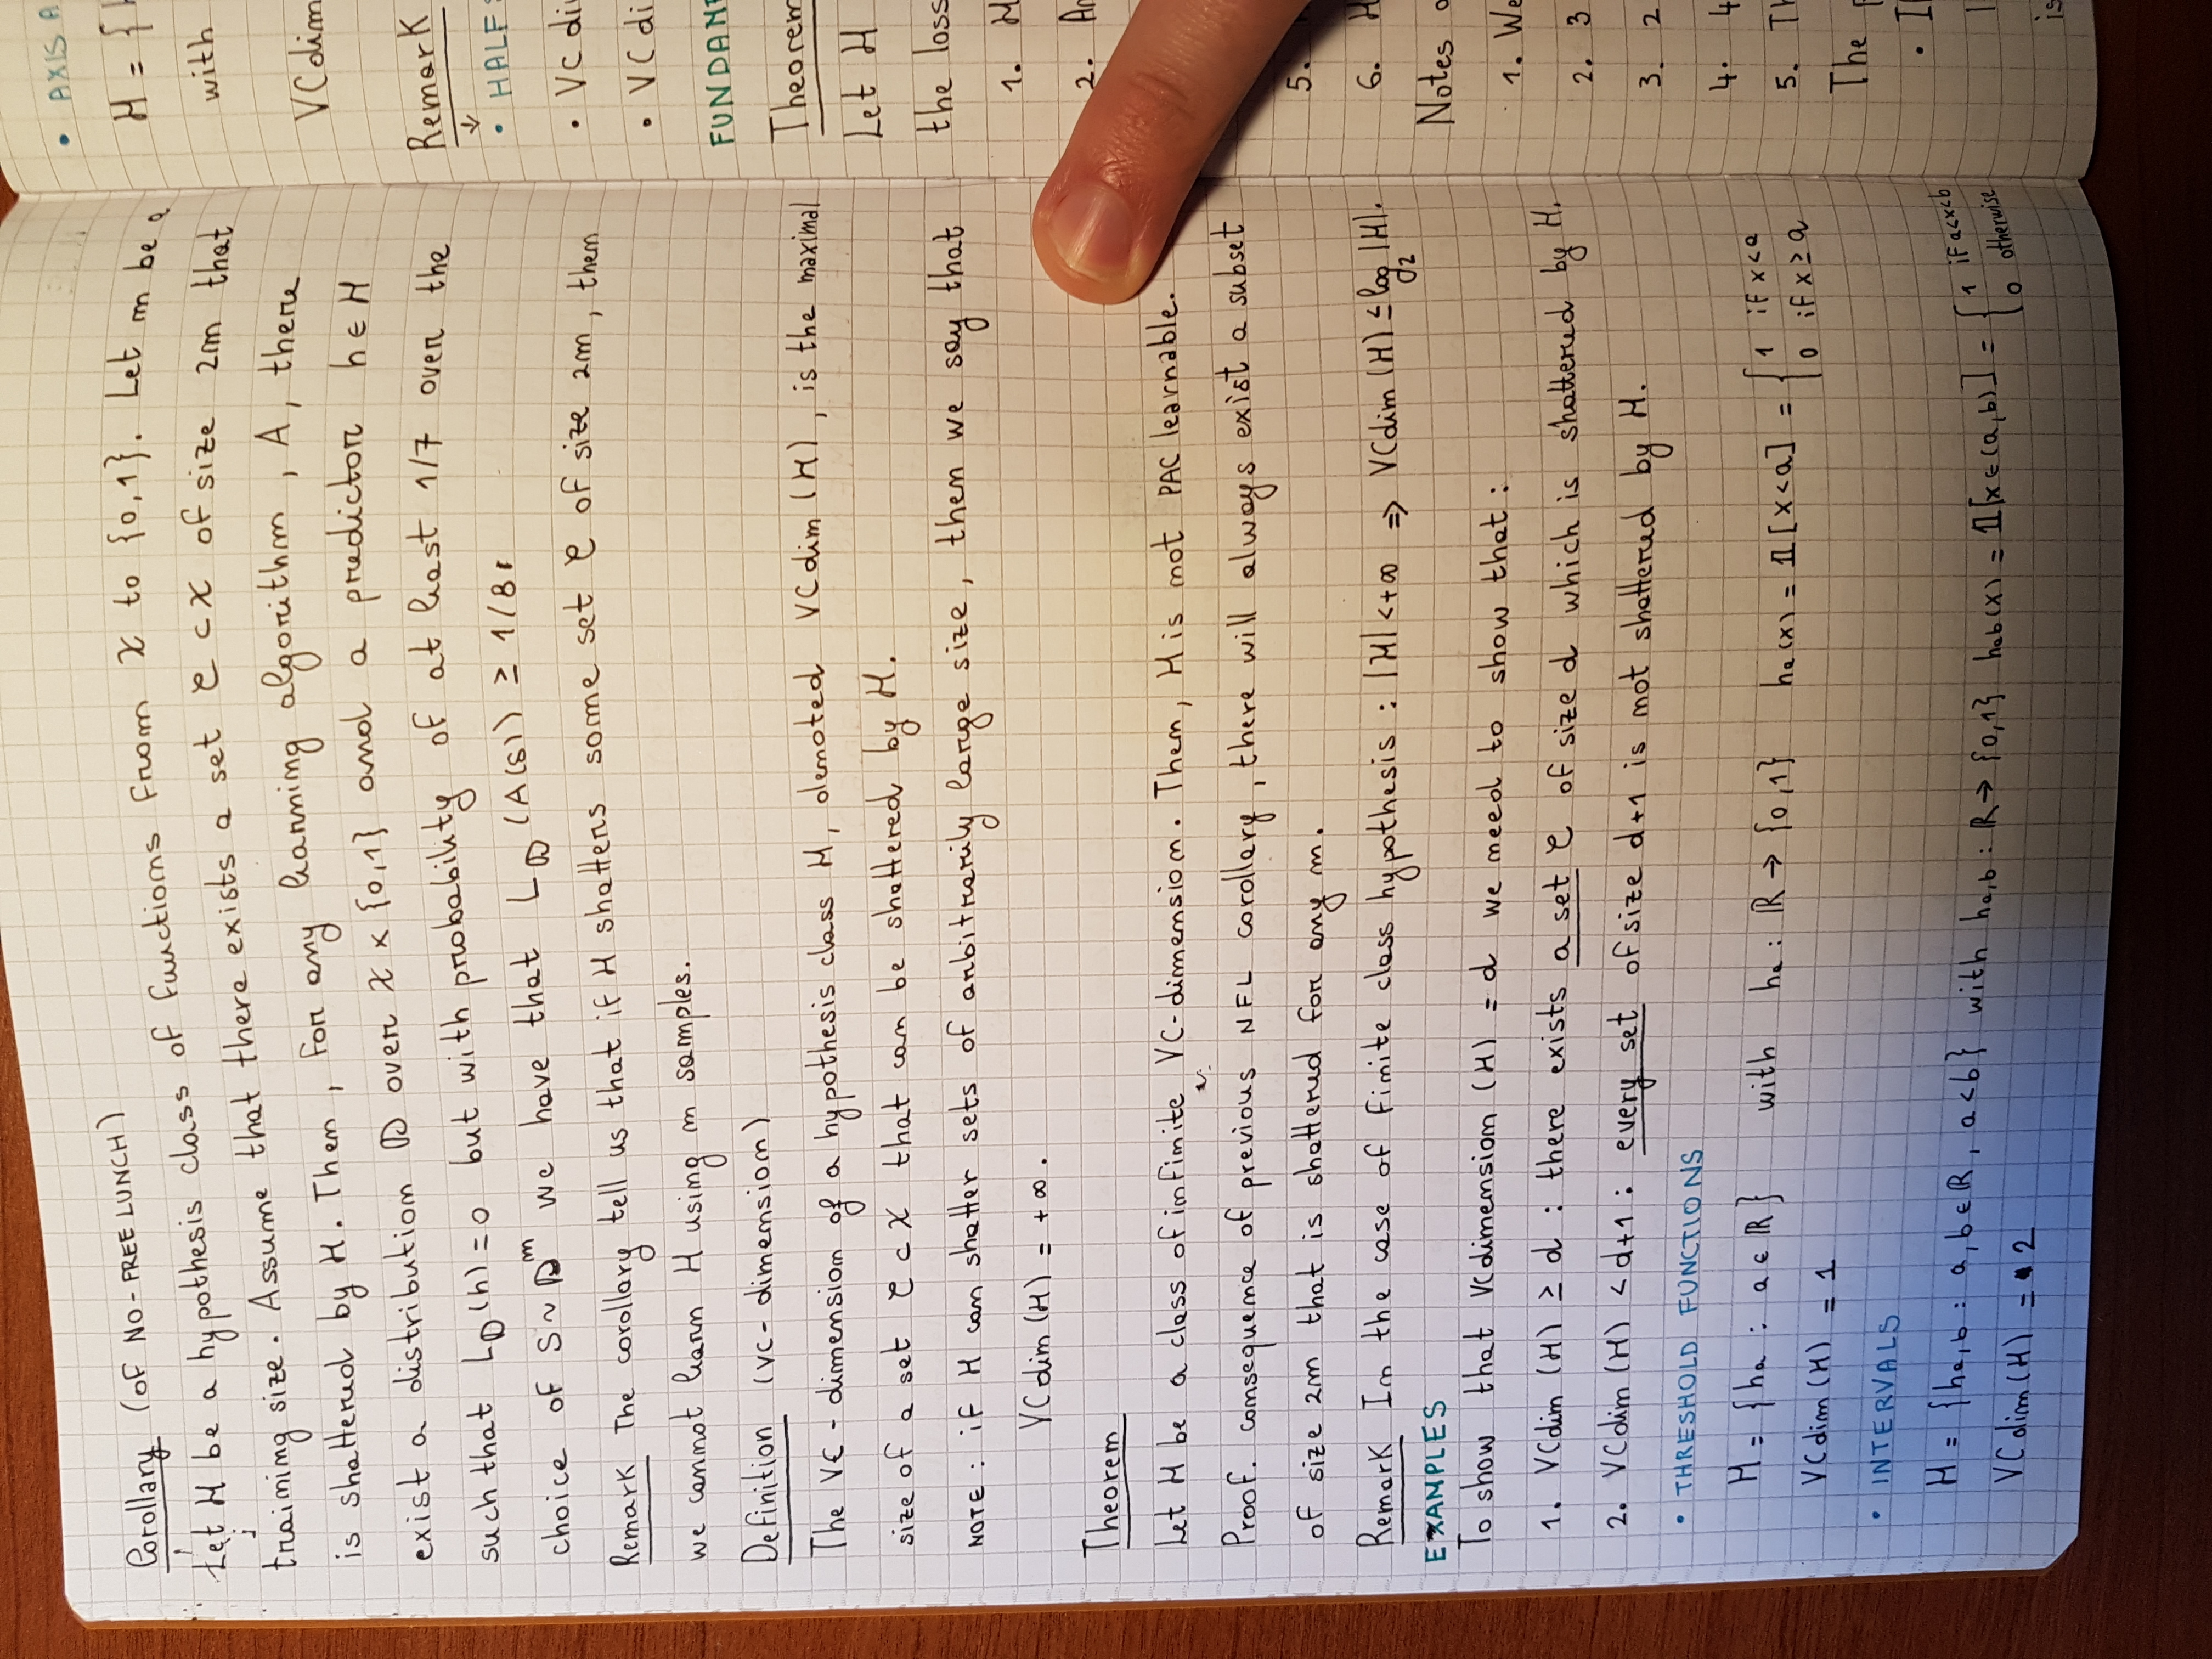 Corollary (OF NO-FREE LUNCH)
Let H be a hypothesis class of functions from X to {0,1}. Let m be a
training size. Assume that there exists a set C ⊂ X of size 2m that
is shattered by H. Then, for any learning algorithm, A, there
exist a distribution D over X × {0,1} and a predictor h ∈ H
such that L_D(h) = 0 but with probability of at least 1/7 over the
choice of S ~ D^m we have that L_D(A(S)) ≥ 1/8.
Remark The corollary tell us that if H shatters some set C of size 2m, then
we cannot learn H using m samples.
Definition (VC-dimension)
The VC-dimension of a hypothesis class H, denoted VCdim(H), is the maximal
size of a set C ⊂ X that can be shattered by H.
NOTE: if H can shatter sets of arbitrarily large size, then we say that
VCdim(H) = +∞.
Theorem
Let H be a class of infinite VC-dimension. Then, H is not PAC learnable.
Proof. consequence of previous NFL corollary, there will always exist a subset
of size 2m that is shattered for any m.
Remark In the case of finite class hypothesis: |H| < +∞ ⇒ VCdim(H) ≤ log₂|H|.
EXAMPLES
To show that VCdimension(H) = d we need to show that:
1. VCdim(H) ≥ d: there exists a set C of size d which is shattered by H.
2. VCdim(H) < d+1: every set of size d+1 is not shattered by H.
• THRESHOLD FUNCTIONS
H = {ha : a ∈ ℝ} with ha : ℝ → {0,1} ha(x) = 𝟙[x<a] = { 1 if x<a
0 if x ≥ a
VCdim(H) = 1
• INTERVALS
H = {ha,b : a,b ∈ ℝ, a<b} with ha,b : ℝ → {0,1} hab(x) = 𝟙[x∈(a,b)] = { 1 if a<x<b
0 otherwise
VCdim(H) = 2
• AXIS A
H = {
with
VCdim
Remark
↓
• HALF
• VC di
• VC di
FUNDAM
Theorem
Let H
the loss
1. H
2.
5.
6. H
Notes
1. We
2. 3
3. 2
4. 4
5. Th
The
•
is